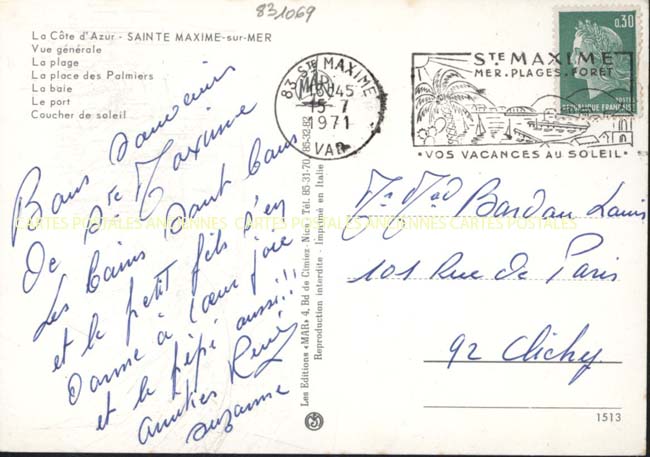 831069
La Côte d'Azur - SAINTE MAXIME-sur-MER
Vue générale
La plage
La place des Palmiers
La baie
Le port
Coucher de soleil
Bons Souvenirs
de Ste Maxime
Les bains sont bons
et le petit fils s'en
donne à cœur joie
et le pépé aussi!!!
amitiés René
Suzanne
Les Editions «MAR» 4, Bd de Cimiez, Nice - Tél. 85-31-70, 85-32-82
Reproduction interdite - Imprimé en Italie
83 STE MAXIME
18H45
15-7
1971
VAR
STE MAXIME
MER. PLAGES. FORÊT
VOS VACANCES AU SOLEIL
0,30
POSTES
REPUBLIQUE FRANÇAISE
Bardau Louis
101 Rue de Paris
92 Clichy
1513
CARTES POSTALES ANCIENNES CARTES POSTALES ANCIENNES CARTES POSTALES